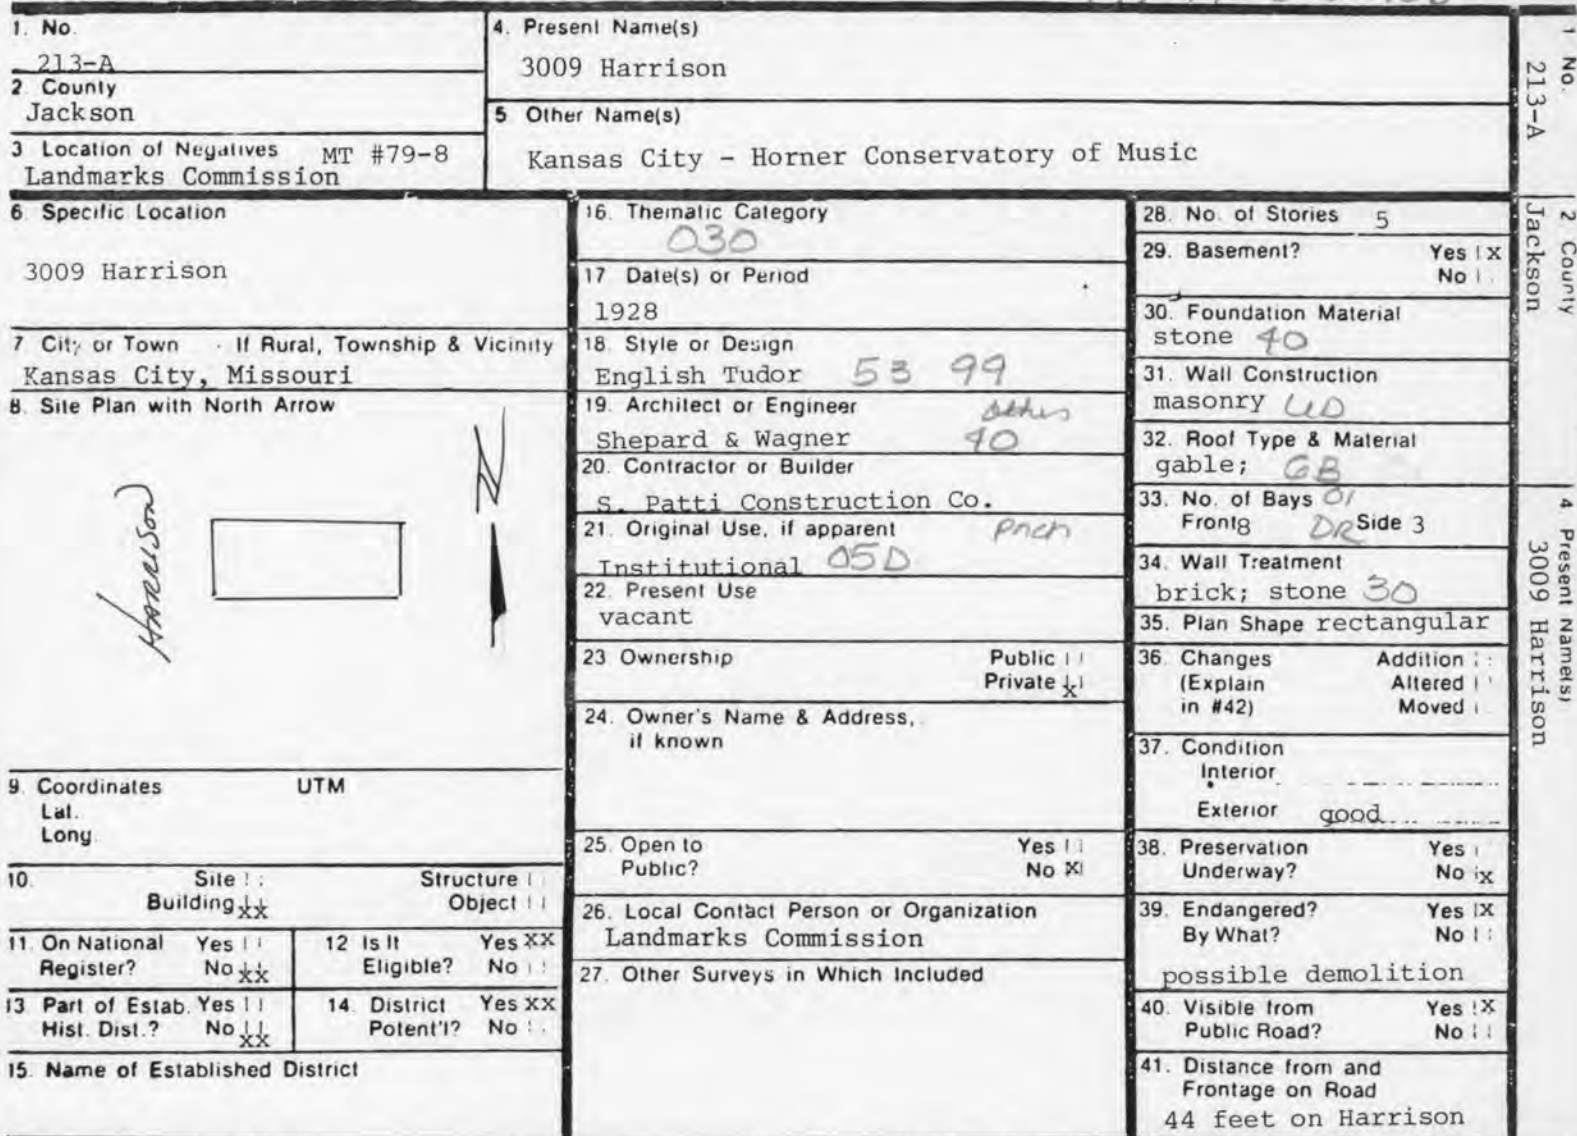 1. No.
213-A
2. County
Jackson
3 Location of Negatives MT #79-8
Landmarks Commission
4. Present Name(s)
3009 Harrison
5 Other Name(s)
Kansas City - Horner Conservatory of Music
6. Specific Location
3009 Harrison
7. City or Town If Rural, Township & Vicinity
Kansas City, Missouri
8. Site Plan with North Arrow
HARRISON
N
9. Coordinates UTM
Lat.
Long.
10. Site Structure
Building xx Object
11. On National Yes
Register? No xx
12 Is It Yes XX
Eligible? No
13 Part of Estab. Yes
Hist. Dist.? No xx
14. District Yes XX
Potent'l? No
15. Name of Established District
16. Thematic Category
030
17 Date(s) or Period
1928
18. Style or Design
English Tudor 53 99
19. Architect or Engineer other
Shepard & Wagner 40
20. Contractor or Builder
S. Patti Construction Co.
21. Original Use, if apparent
Institutional 05D
22. Present Use
vacant
23 Ownership Public
Private x
24. Owner's Name & Address,
if known
25. Open to Yes
Public? No X
26. Local Contact Person or Organization
Landmarks Commission
27. Other Surveys in Which Included
28. No. of Stories 5
29. Basement? Yes X
No
30. Foundation Material
stone 40
31. Wall Construction
masonry
32. Roof Type & Material
gable; GB
33. No. of Bays 01
Front 8 DR Side 3
34. Wall Treatment
brick; stone 30
35. Plan Shape rectangular
36. Changes Addition
(Explain Altered
in #42) Moved
37. Condition
Interior
Exterior good
38. Preservation Yes
Underway? No x
39. Endangered? Yes X
By What? No
possible demolition
40. Visible from Yes X
Public Road? No
41. Distance from and
Frontage on Road
44 feet on Harrison
1 No.
213-A
2 County
Jackson
4 Present Name(s)
3009 Harrison